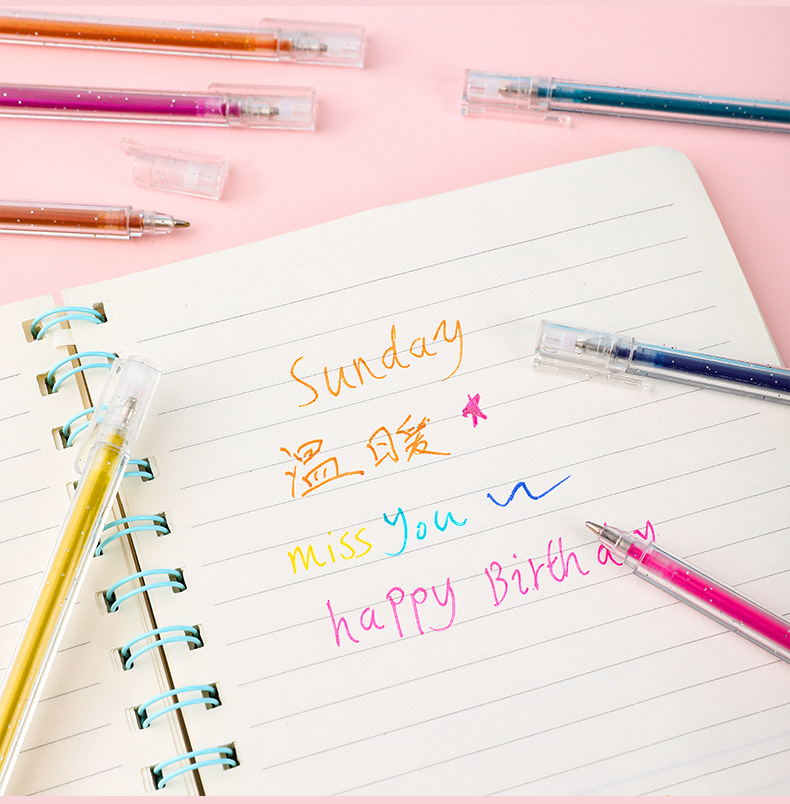 Sunday
温暖
miss you
happy Birthday